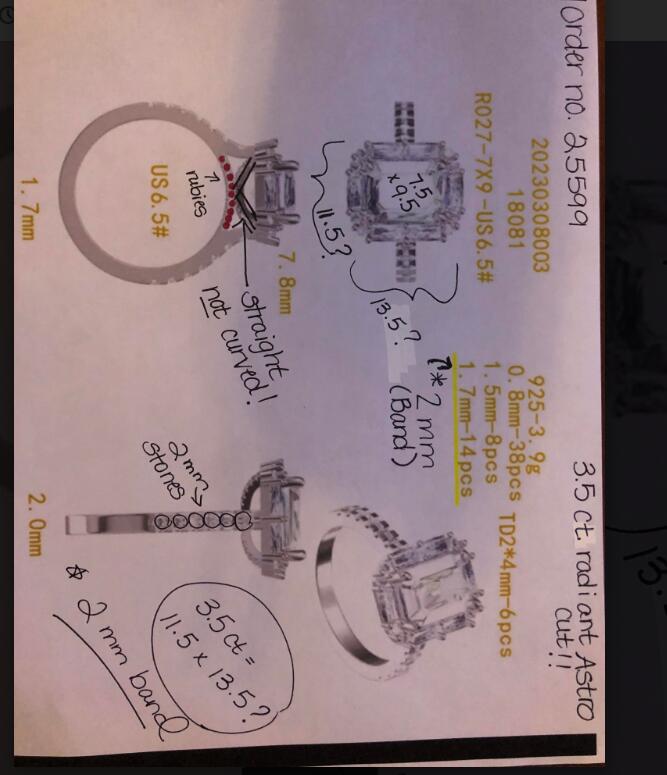 order no. 25599
3.5 ct radiant Astro
cut!!
20230308003
18081
R027-7X9-US6.5#
925-3.9g
0.8mm-38pcs
1.5mm-8pcs
1.7mm-14pcs
TD2*4mm-6pcs
↑* 2mm
(Band)
7.5
x 9.5
11.5?
13.5?
7.8mm
US6.5#
↑
rubies
straight
not curved!
1.7mm
2mm →
stones
3.5ct =
11.5 x 13.5?
2.0mm
* 2mm band
13.